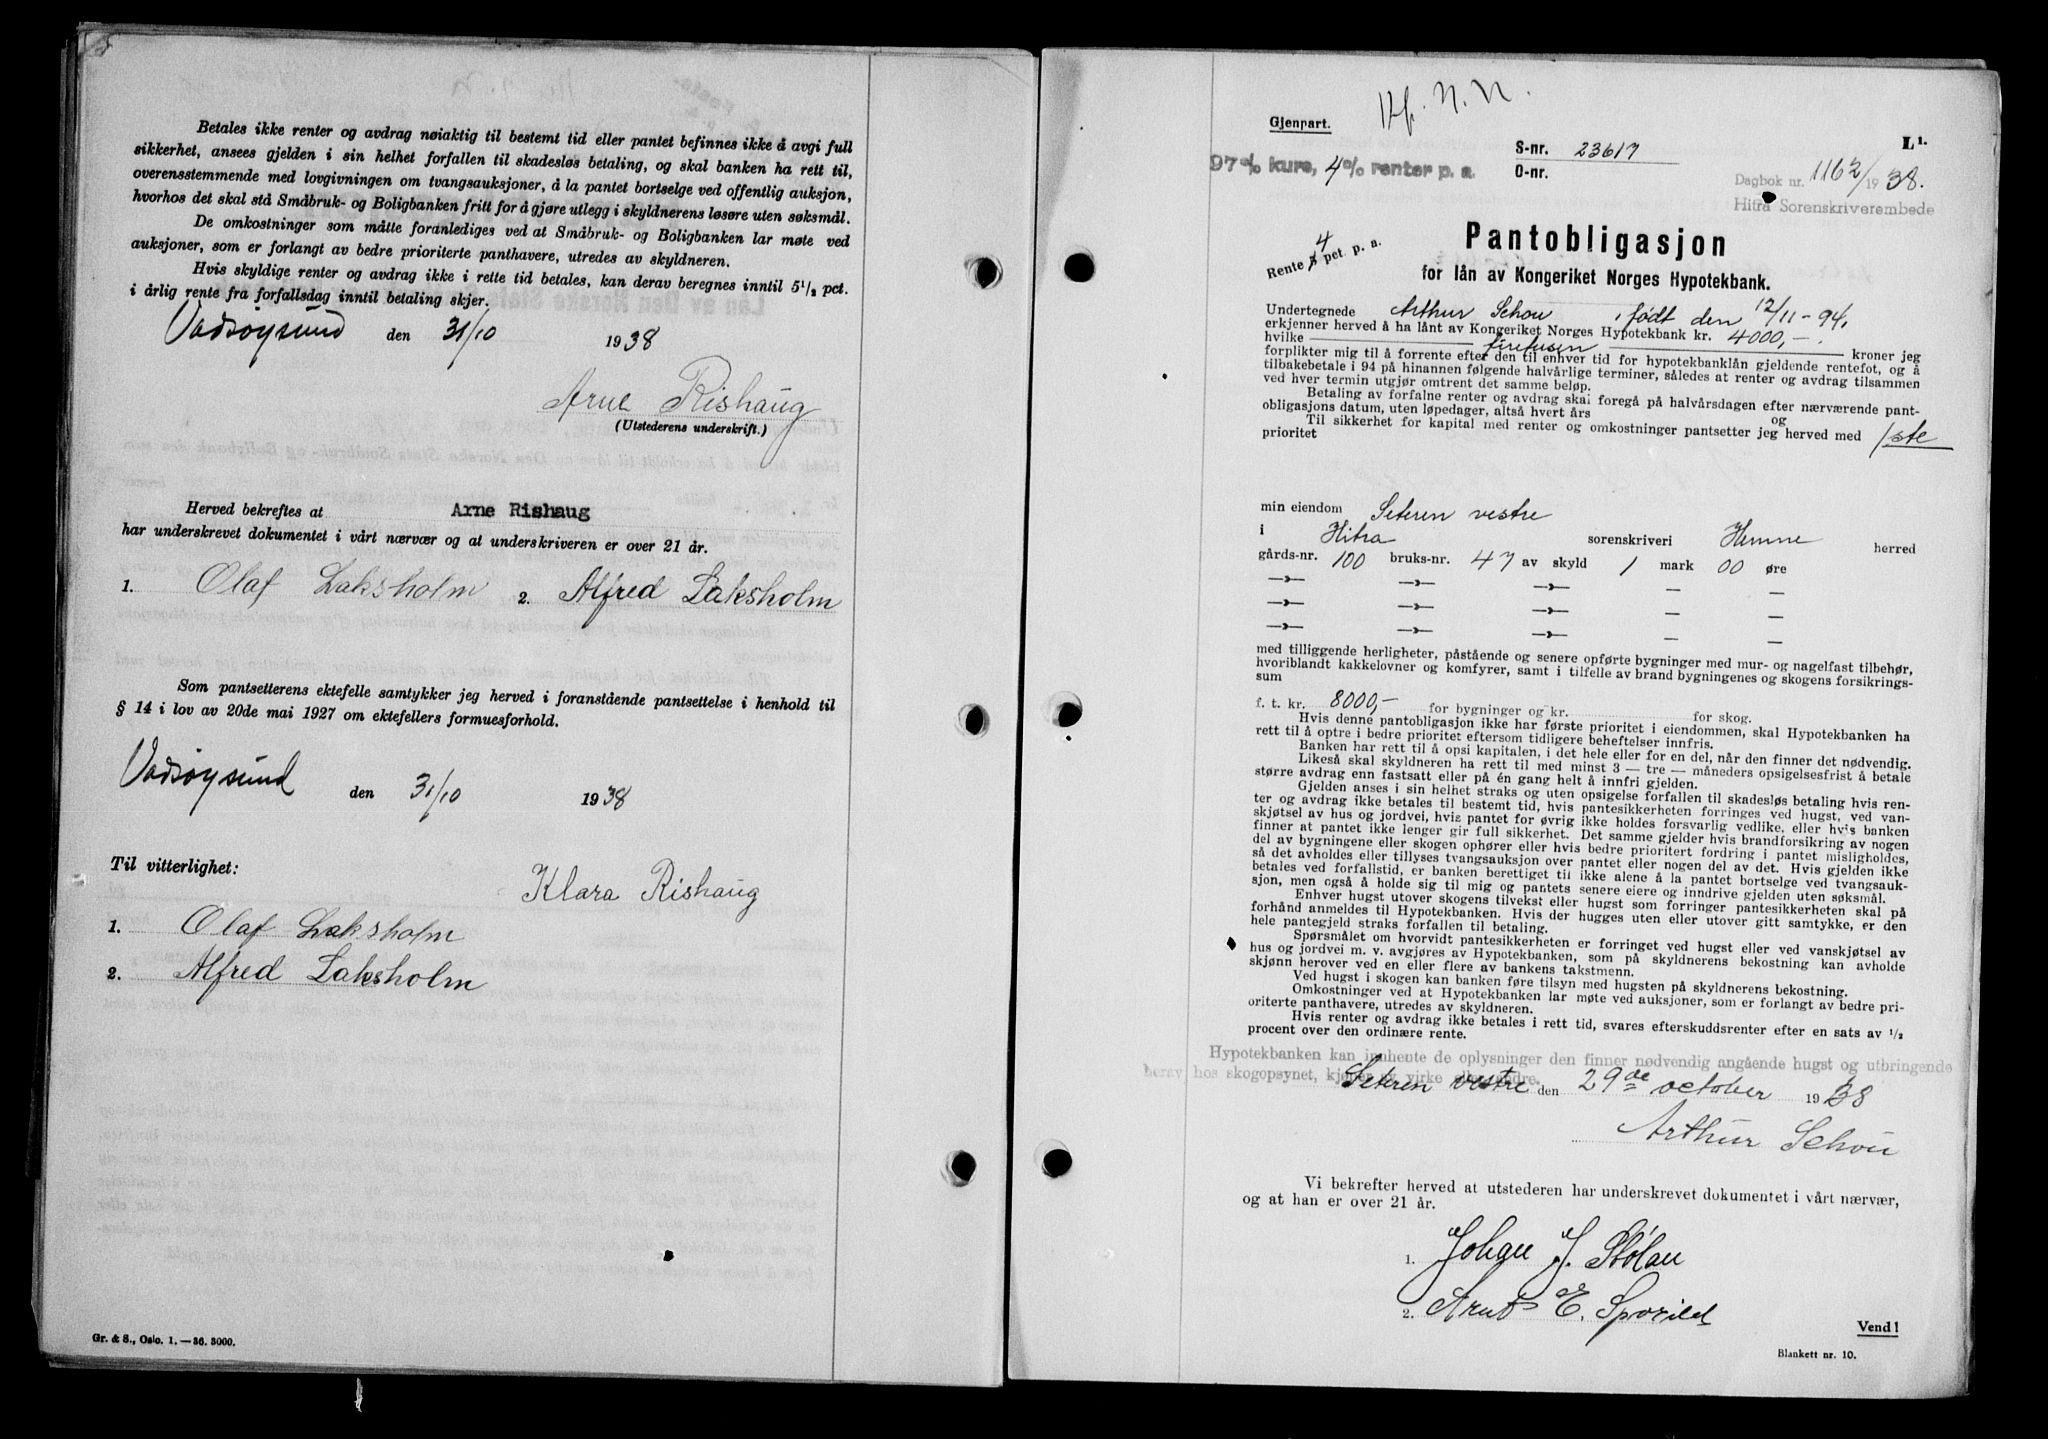 Betales ikke renter og avdrag nøiaktig til bestemt tid eller pantet befinnes ikke å avgi full
sikkerhet, ansees gjelden i sin helhet forfallen til skadesløs betaling, og skal banken ha rett til,
overensstemmende med lovgivningen om tvangsauksjoner, å la pantet bortselge ved offentlig auksjon,
hvorhos det skal stå Småbruk- og Boligbanken fritt for å gjøre utlegg i skyldnerens løsøre uten søksmål.
De omkostninger som måtte foranlediges ved at Småbruk- og Boligbanken lar møte ved
auksjoner, som er forlangt av bedre prioriterte panthavere, utredes av skyldneren.
Hvis skyldige renter og avdrag ikke i rette tid betales, kan derav beregnes inntil 5 1/2 pct.
i årlig rente fra forfallsdag inntil betaling skjer.
Vadsøysund den 31/10 1938
Arne Rishaug
(Utstederens underskrift.)
Herved bekreftes at Arne Rishaug
har underskrevet dokumentet i vårt nærvær og at underskriveren er over 21 år.
1. Olaf Laksholm 2. Alfred Laksholm
Som pantsetterens ektefelle samtykker jeg herved i foranstående pantsettelse i henhold til
§ 14 i lov av 20de mai 1927 om ektefellers formuesforhold.
Vadsøysund den 31/10 1938
Til vitterlighet:
Klara Rishaug
1. Olaf Laksholm
2. Alfred Laksholm
Gr. & S., Oslo. 1. —36. 3000.
Gjenpart.
S-nr. 23617
L 1.
97 o/o kurs, 4 o/o renter p. a.
O-nr.
Dagbok nr. 1162/1938.
Hitra Sorenskriverembede
Rente 4 pct. p. a.
Pantobligasjon
for lån av Kongeriket Norges Hypotekbank.
Undertegnede Arthur Schou, født den 12/11-94,
erkjenner herved å ha lånt av Kongeriket Norges Hypotekbank kr. 4000,-.
hvilke firetusen kroner jeg
forplikter mig til å forrente efter den til enhver tid for hypotekbanklån gjeldende rentefot, og å
tilbakebetale i 94 på hinannen følgende halvårlige terminer, således at renter og avdrag tilsammen
ved hver termin utgjør omtrent det samme beløp.
Betaling av forfalne renter og avdrag skal foregå på halvårsdagen efter nærværende pant-
obligasjons datum, uten løpedager, altså hvert års og
Til sikkerhet for kapital med renter og omkostninger pantsetter jeg herved med 1ste
prioritet
min eiendom Seteren vestre
i Hitra sorenskriveri Hemne herred
gårds-nr. 100 bruks-nr. 47 av skyld 1 mark 00 øre
med tilliggende herligheter, påstående og senere opførte bygninger med mur- og nagelfast tilbehør,
hvoriblandt kakkelovner og komfyrer, samt i tilfelle av brand bygningenes og skogens forsikrings-
sum
f. t. kr. 8000,- for bygninger og kr. for skog.
Hvis denne pantobligasjon ikke har første prioritet i eiendommen, skal Hypotekbanken ha
rett til å optre i bedre prioritet eftersom tidligere beheftelser innfris.
Banken har rett til å opsi kapitalen, i det hele eller for en del, når den finner det nødvendig.
Likeså skal skyldneren ha rett til med minst 3 — tre — måneders opsigelsesfrist å betale
større avdrag enn fastsatt eller på én gang helt å innfri gjelden.
Gjelden anses i sin helhet straks og uten opsigelse forfallen til skadesløs betaling hvis ren-
ter og avdrag ikke betales til bestemt tid, hvis pantesikkerheten forringes ved hugst, ved van-
skjøtsel av hus og jordvei, hvis pantet for øvrig ikke holdes forsvarlig vedlike, eller hvis banken
finner at pantet ikke lenger gir full sikkerhet. Det samme gjelder hvis brandforsikring av nogen
del av bygningene eller skogen ophører eller hvis bedre prioritert fordring i pantet misligholdes,
så det avholdes eller tillyses tvangsauksjon over pantet eller nogen del av det. Hvis gjelden ikke
betales ved forfallstid, er banken berettiget til ikke alene å la pantet bortselge ved tvangsauk-
sjon, men også å holde sig til mig og pantets senere eiere og inndrive gjelden uten søksmål.
Enhver hugst utover skogens tilvekst eller hugst som forringer pantesikkerheten skal på
forhånd anmeldes til Hypotekbanken. Hvis der hugges uten eller utover gitt samtykke, er den
hele pantegjeld straks forfallen til betaling.
Spørsmålet om hvorvidt pantesikkerheten er forringet ved hugst eller ved vanskjøtsel av
hus og jordvei m. v. avgjøres av Hypotekbanken, som på skyldnerens bekostning kan avholde
skjønn herover ved en eller flere av bankens takstmenn.
Ved hugst i skogen kan banken føre tilsyn med hugsten på skyldnerens bekostning.
Omkostninger ved at Hypotekbanken lar møte ved auksjoner, som er forlangt av bedre pri-
oriterte panthavere, utredes av skyldneren.
Hvis renter og avdrag ikke betales i rett tid, svares efterskuddsrenter efter en sats av 1/2
procent over den ordinære rente.
Hypotekbanken kan innhente de oplysninger den finner nødvendig angående hugst og utbringende
herav hos skogopsynet, kjøper av virke eller andre.
Seteren vestre den 29de october 1938
Arthur Schou
Vi bekrefter herved at utstederen har underskrevet dokumentet i vårt nærvær,
og at han er over 21 år.
1. Johan J. Stølan
2. Arnt E. Sporild
Vend!
Blankett nr. 10.